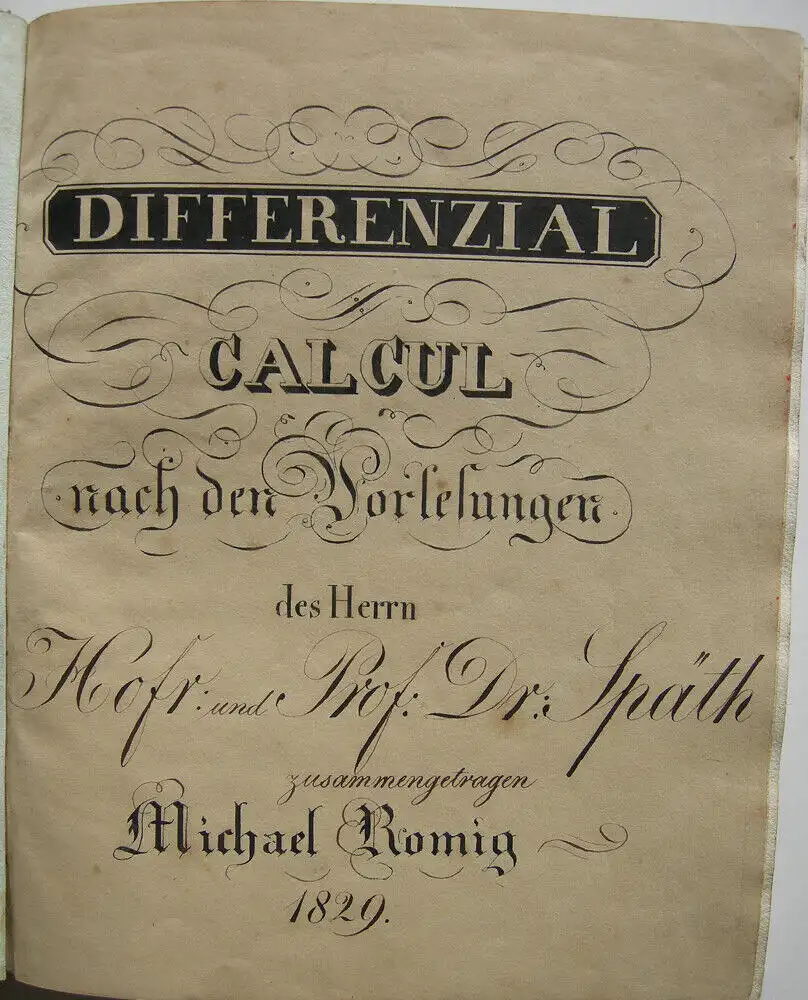 DIFFERENZIAL
CALCUL
nach den Vorlesungen.
des Herrn
Hofr: und Prof: Dr: Späth
zusammengetragen
Michael Romig
1829.